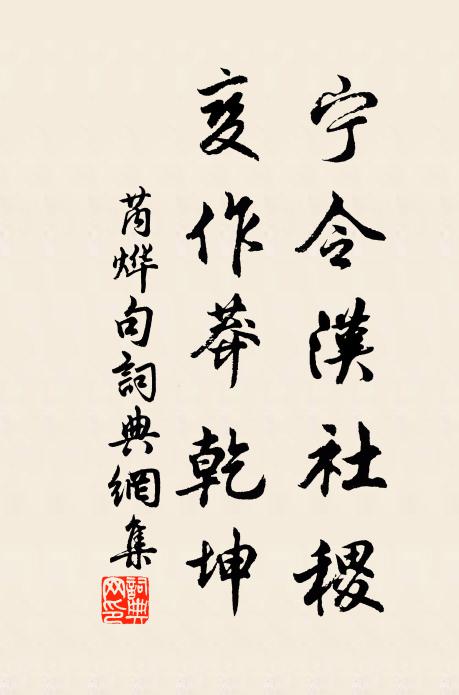 宁令漢社稷
变作莽乾坤
芮烨句詞典網集
詞典網印